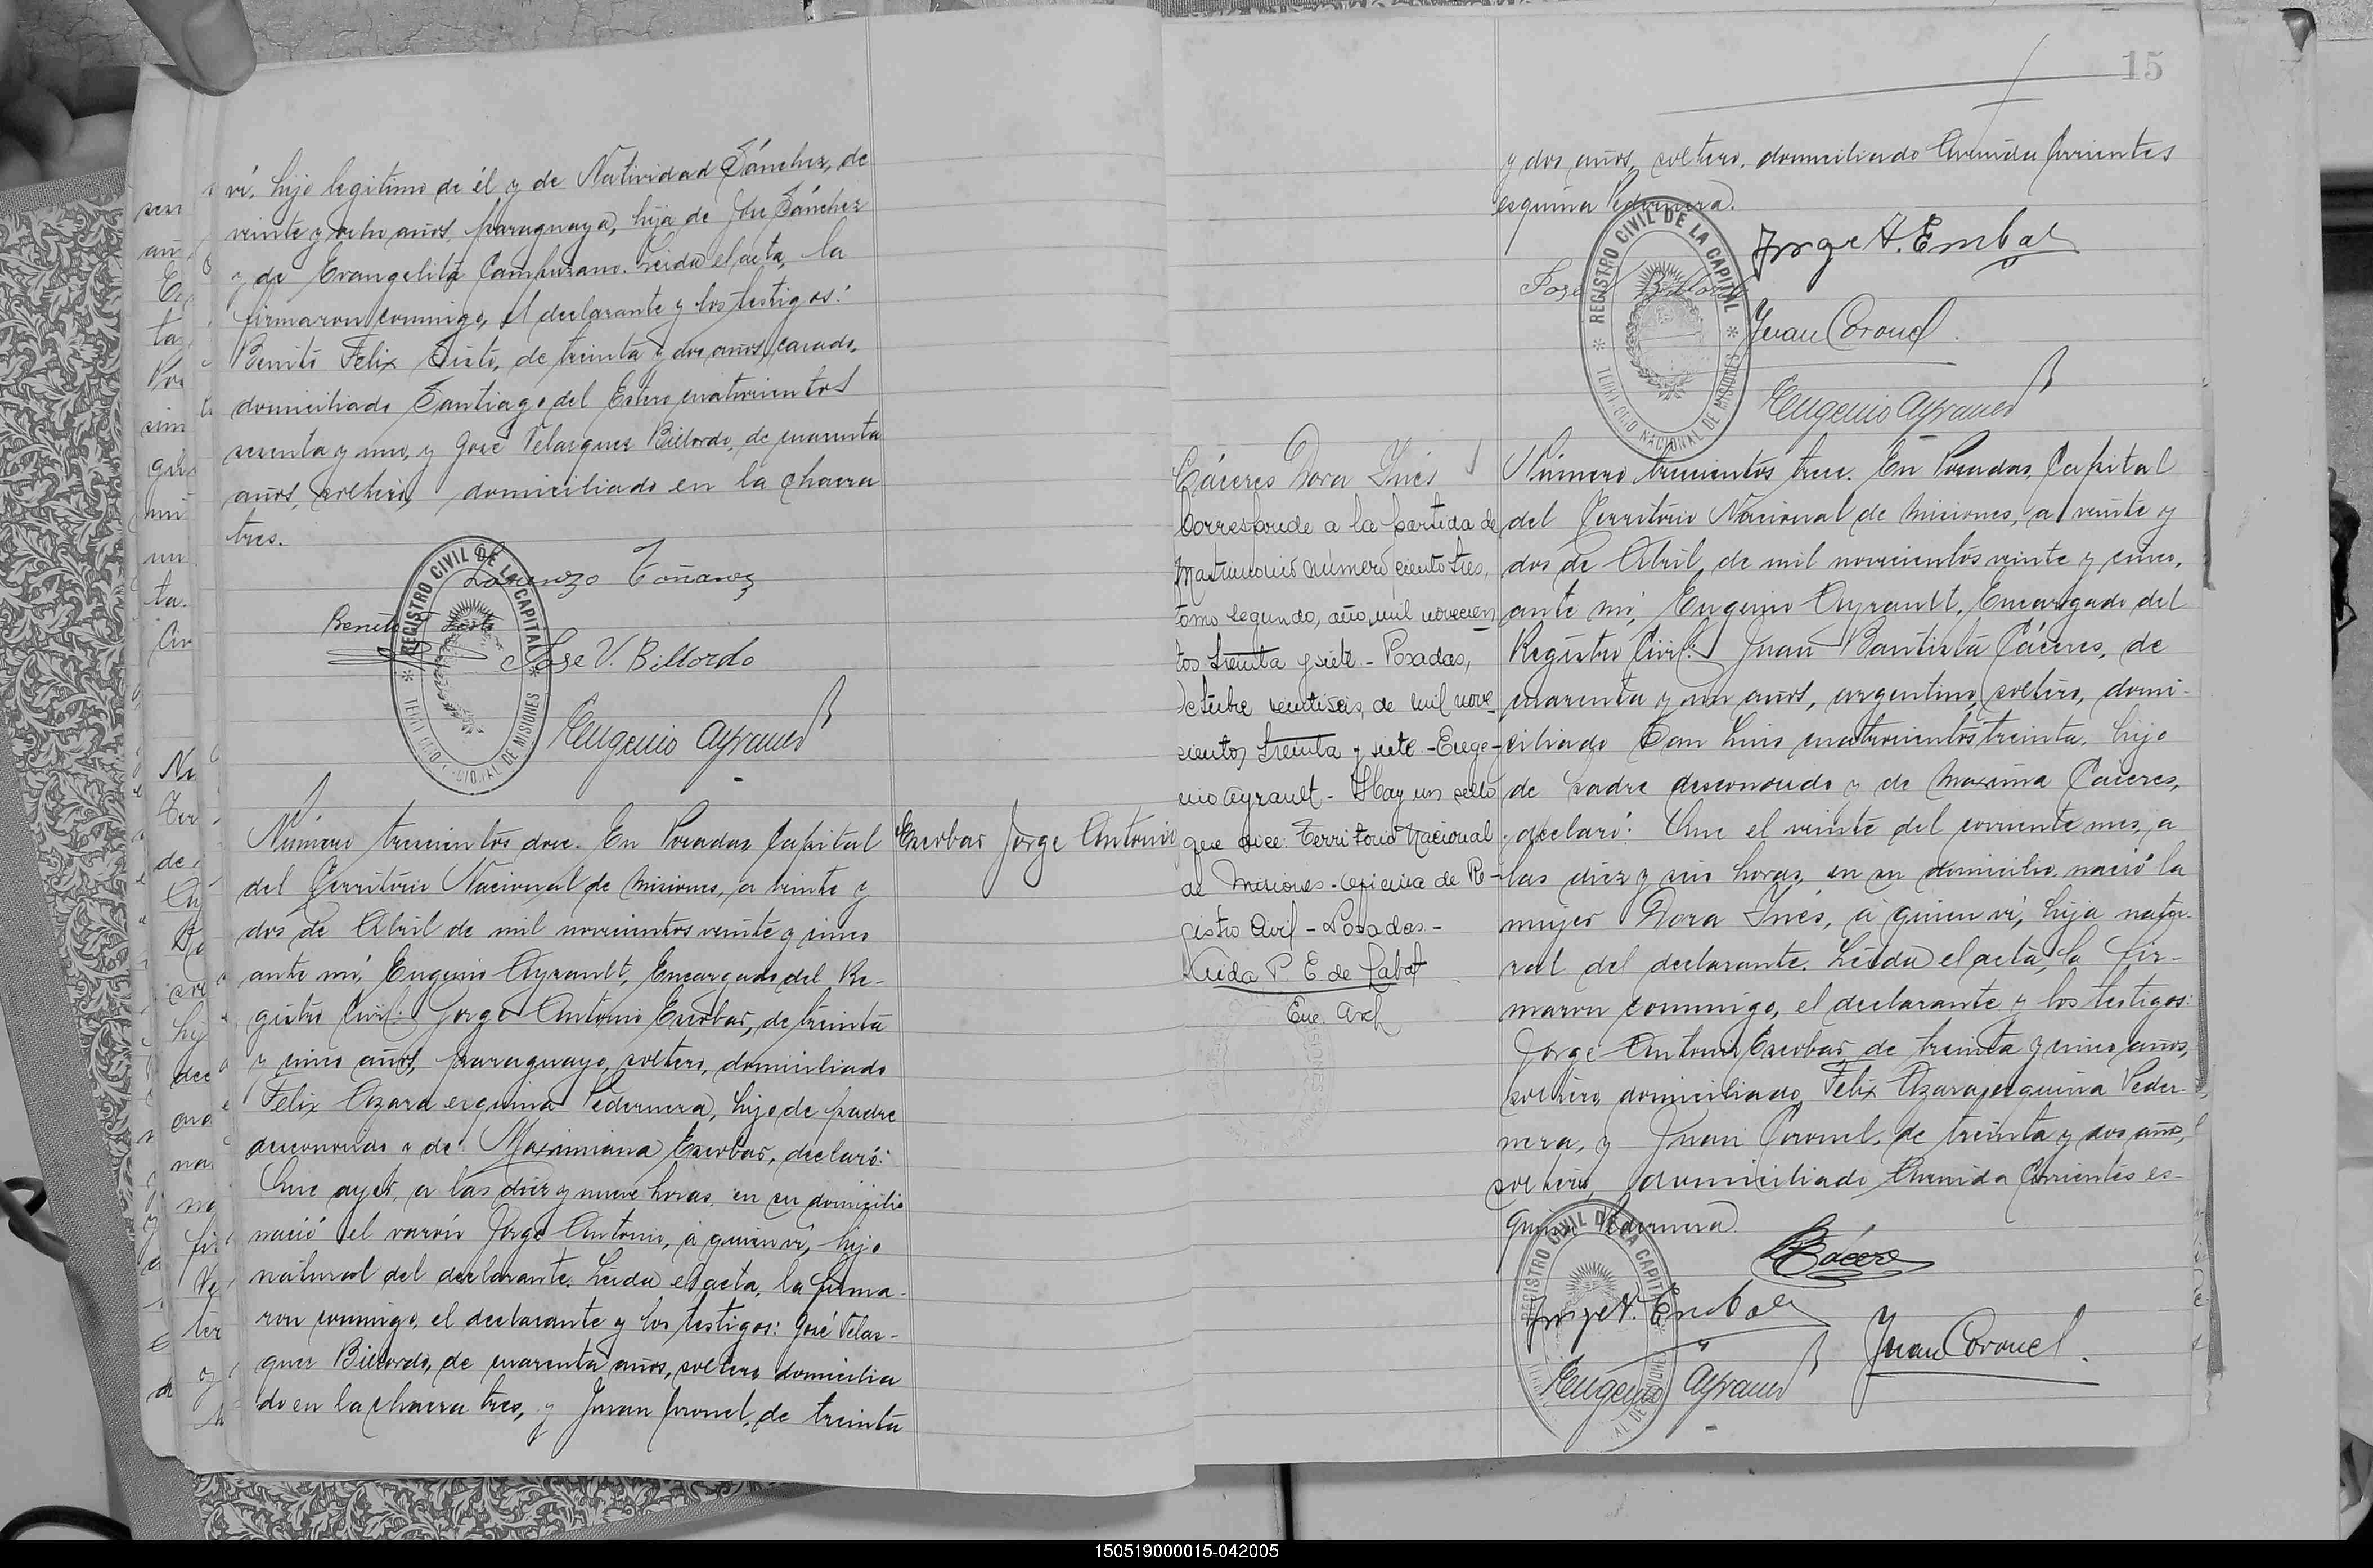 ví, hijo legitimo de él y de Natividad Sánchez, de
veinte y ocho años, paraguaya, hija de José Sánchez
y de Evangelista Campuzano. Leida el acta, la
firmaron conmigo, el declarante y los testigos:
Benito Felix Sisto, de treinta y dos años, casado,
domiciliado Santiago del Estero cuatrocientos
sesenta y uno, y José Velazquez Billordo, de cuarenta
años, soltero, domiciliado en la chacra
tres.
REGISTRO CIVIL DE LA CAPITAL
TERRITORIO NACIONAL DE MISIONES
Lorenzo Toñanez
Benito Sisto
Jose V. Billordo
Eugenio Ayrault
Número trescientos doce. En Posadas, Capital
del Territorio Nacional de Misiones, a veinte y
dos de Abril de mil novecientos veinte y cinco
ante mí, Eugenio Ayrault, Encargado del Re-
gistro Civil: Jorge Antonio Escobar, de treinta
y cinco años, paraguayo, soltero, domiciliado
Felix Azara esquina Pedernera, hijo de padre
desconocido y de Maximiana Escobar, declaró:
Que ayer, a las diez y nueve horas, en su domicilio
nació el varón Jorge Antonio, a quien ví, hijo
natural del declarante. Leida el acta, la firma-
ron conmigo, el declarante y los testigos: José Velaz-
quez Billordo, de cuarenta años, soltero, domicilia
do en la chacra tres, y Juan Coronel, de treinta
Escobar Jorge Antonio
15
y dos años, soltero, domiciliado Avenida Corrientes
esquina Pedernera.
REGISTRO CIVIL DE LA CAPITAL
TERRITORIO NACIONAL DE MISIONES
Jorge A. Escobar
Jose V Billordo
Juan Coronel
Eugenio Ayrault
Cáceres Dora Inés
Corresponde a la partida de
Matrimonio número ciento tres,
tomo segundo, año mil novecien
tos treinta y siete - Posadas,
Octubre veintiseis, de mil nove
cientos treinta y siete - Euge-
nio Ayrault - Hay un sello
que dice: Territorio Nacional
de Misiones - Oficina de Re-
gistro Civil - Posadas -
P. E. de
Enc. Arch
Número trescientos trece. En Posadas, Capital
del Territorio Nacional de Misiones, a veinte y
dos de Abril, de mil novecientos veinte y cinco,
ante mí, Eugenio Ayrault, Encargado del
Registro Civil: Juan Bautista Cáceres, de
cuarenta y un años, argentino, soltero, domi-
ciliado San Luis cuatrocientos treinta, hijo
de padre desconocido y de Maxima Cáceres,
declaró: Que el veinte del corriente mes, a
las diez y seis horas, en su domicilio, nació la
mujer Dora Inés, a quien ví, hija natu-
ral del declarante. Leida el acta, la fir-
maron conmigo, el declarante y los testigos:
Jorge Antonio Escobar, de treinta y cinco años,
soltero, domiciliado, Felix Azara esquina Peder-
nera, y Juan Coronel, de treinta y dos años,
soltero, domiciliado Avenida Corrientes es-
quina Pedernera.
REGISTRO CIVIL DE LA CAPITAL
Cáceres
Jorge A. Escobar
Juan Coronel.
Eugenio Ayrault
150519000015-042005